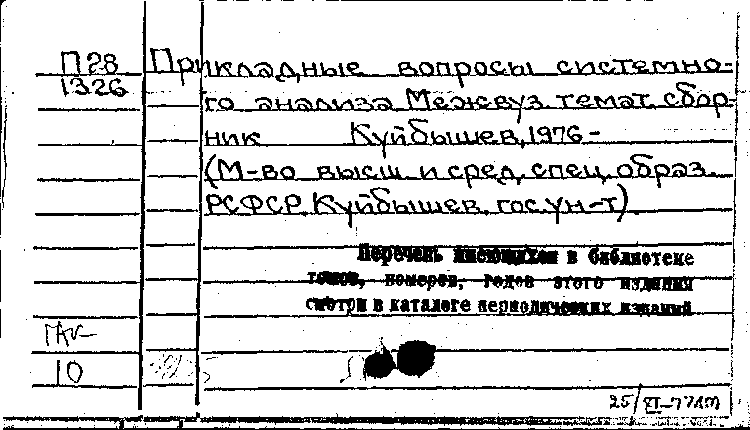 П28 Прикладные вопросы системно-
1326 го анализа Межвуз. темат. сбор-
ник Куйбышев, 1976 -
(М-во высш и сред. спец. образ.
РСФСР. Куйбышев. гос. ун-т).
Перечень имеющихся в библиотеке
томов, номеров, годов этого издания
смотри в каталоге периодических изданий
10
25/XI-77